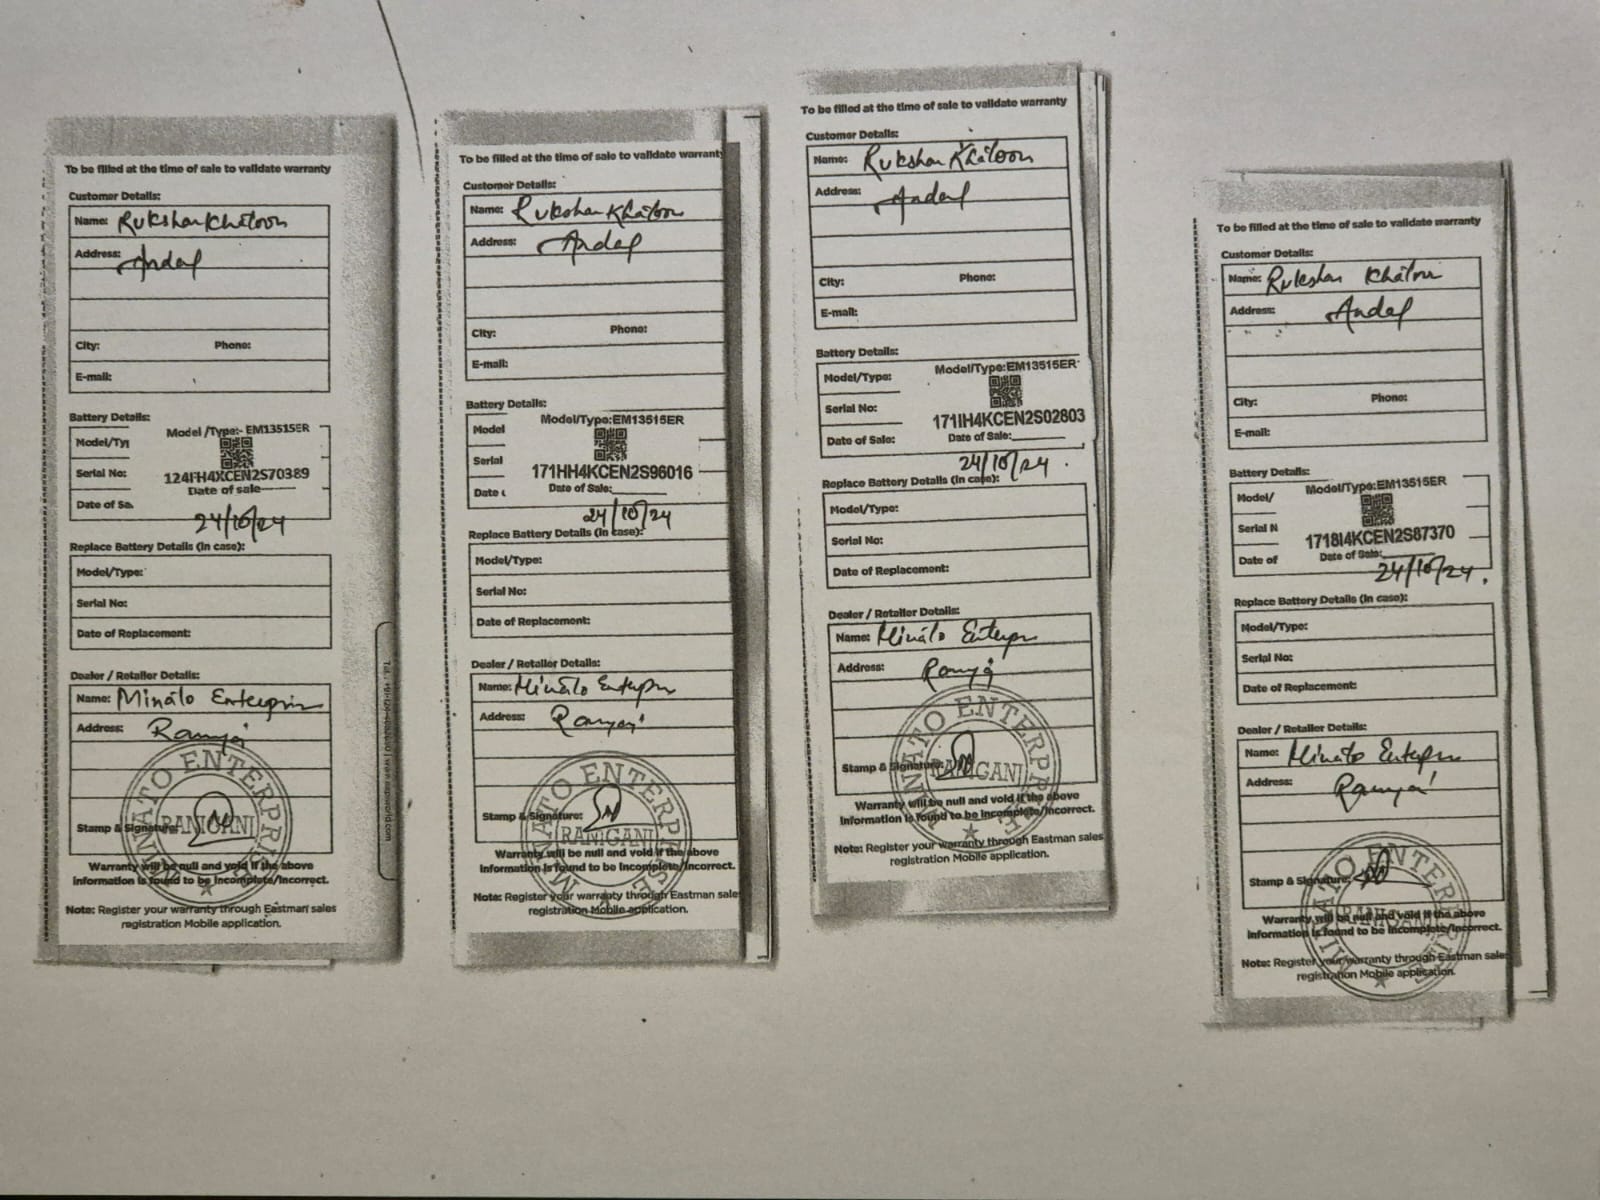 To be filled at the time of sale to validate warranty
Customer Details:
Name: Rukshar Khatoon
Address: Andal
City: Phone:
E-mail:
Battery Details:
Model/Ty
Model /Type:- EM13515ER
Serial No:
124FH4XCEN2S70389
Date of Sa
Date of sale
24/10/24
Replace Battery Details (in case):
Model/Type:
Serial No:
Date of Replacement:
Dealer / Retailer Details:
Name: Minato Enterprise
Address:
MINATO ENTERPRISE
RANIGANJ
Stamp & Signature:
Warranty will be null and void if the above
information is found to be incomplete/incorrect.
Note: Register your warranty through Eastman sales
registration Mobile application.
To be filled at the time of sale to validate warranty
Customer Details:
Name: Rukshar Khatoon
Address: Andal
City: Phone:
E-mail:
Battery Details:
Model
Model/Type:EM13515ER
Serial
171HH4KCEN2S96016
Date
Date of Sale:
24/10/24
Replace Battery Details (in case):
Model/Type:
Serial No:
Date of Replacement:
Dealer / Retailer Details:
Name: Minato Enterpr
Address:
MINATO ENTERPRISE
RANIGANJ
Stamp & Signature:
Warranty will be null and void if the above
information is found to be incomplete/incorrect.
Note: Register your warranty through Eastman sale
registration Mobile application.
To be filled at the time of sale to validate warranty
Customer Details:
Name: Rukshar Khatoon
Address: Andal
City: Phone:
E-mail:
Battery Details:
Model/Type:
Model/Type:EM13515ER
Serial No:
171IH4KCEN2S02803
Date of Sale:
Date of Sale:
24/10/24
Replace Battery Details (in case):
Model/Type:
Serial No:
Date of Replacement:
Dealer / Retailer Details:
Name: Minato Enterpr
Address:
MINATO ENTERPRISE
RANIGANJ
Stamp & Signature:
Warranty will be null and void if the above
information is found to be incomplete/incorrect.
Note: Register your warranty through Eastman sales
registration Mobile application.
To be filled at the time of sale to validate warranty
Customer Details:
Name: Rukshar Khatoon
Address: Andal
City: Phone:
E-mail:
Battery Details:
Model/
Model/Type:EM13515ER
Serial N
1718I4KCEN2S87370
Date of
Date of Sale:
24/10/24
Replace Battery Details (in case):
Model/Type:
Serial No:
Date of Replacement:
Dealer / Retailer Details:
Name: Minato Enterpr
Address:
MINATO ENTERPRISE
RANIGANJ
Stamp & Signature:
Warranty will be null and void if the above
information is found to be incomplete/incorrect.
Note: Register your warranty through Eastman sale
registration Mobile application.